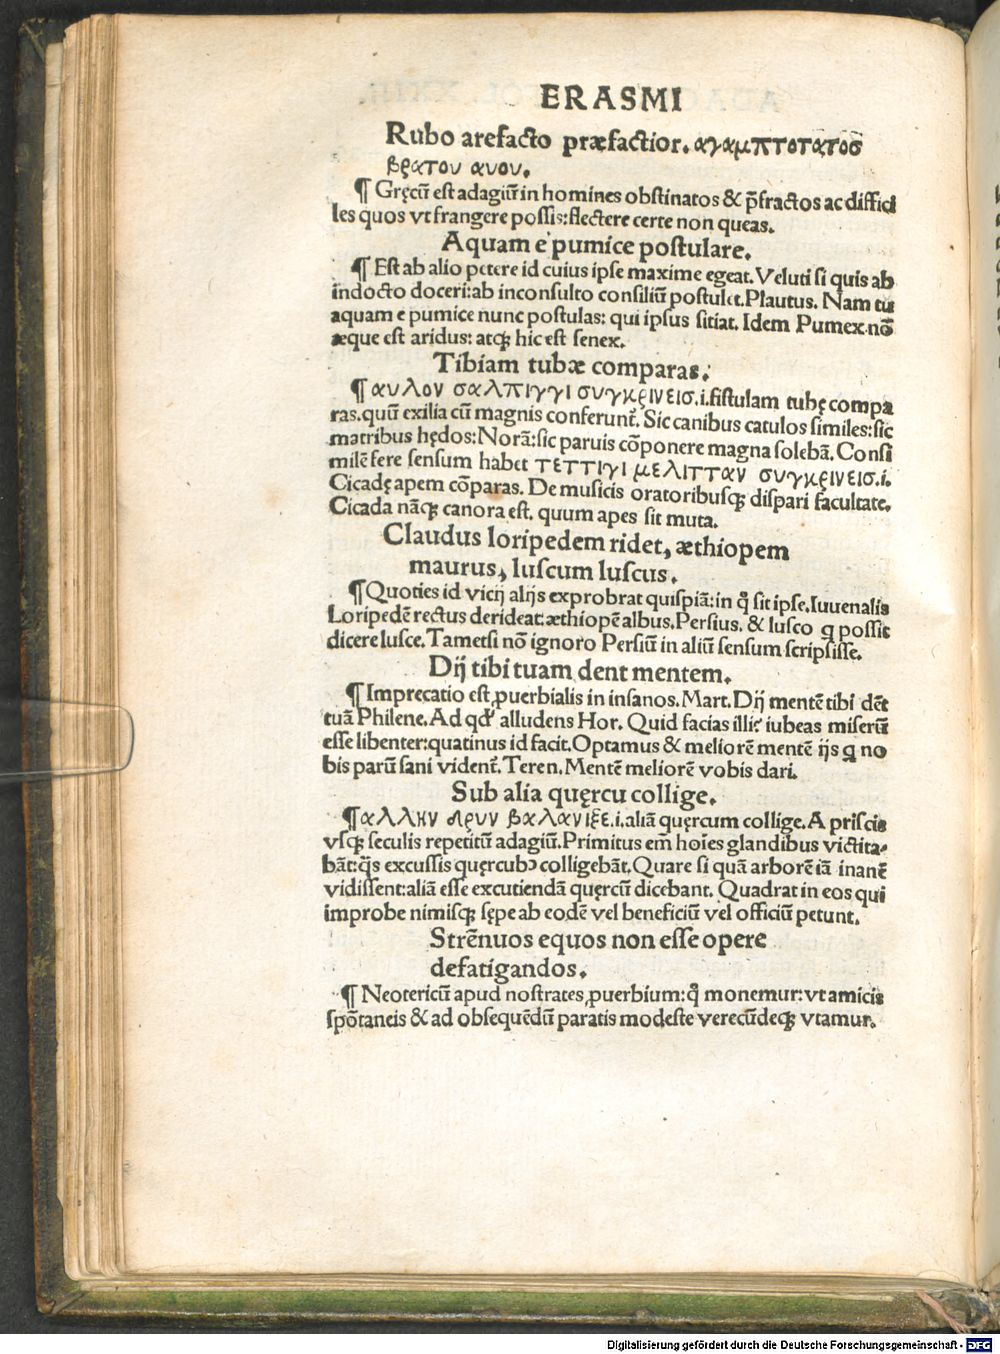 ERASMI
Rubo arefacto præfactior. αγαμπτοτατοσ
βρατου αυου.
¶ Gręcū est adagiū in homines obstinatos & p̄fractos ac diffici
les quos vt frangere possis: flectere certe non queas.
Aquam e pumice postulare.
¶ Est ab alio petere id cuius ipse maxime egeat. Veluti si quis ab
indocto doceri: ab inconsulto consiliū postulet. Plautus. Nam tu
aquam e pumice nunc postulas: qui ipsus sitiat. Idem Pumex nō
æque est aridus: atqꝫ hic est senex.
Tibiam tubæ comparas.
¶ αυλον σαλπιγγι συγκρινεισ.i.fistulam tubę compa
ras. quū exilia cū magnis conferunt̄. Sic canibus catulos similes: sic
matribus hędos: Norā: sic paruis cōponere magna solebā. Consi
milē fere sensum habet τεττιγι μελιτταν συγκρινεισ.i.
Cicadę apem cōparas. De musicis oratoribusqꝫ dispari facultate.
Cicada nāqꝫ canora est, quum apes sit muta.
Claudus loripedem ridet, æthiopem
maurus, luscum luscus.
¶ Quoties id vicij alijs exprobrat quispiā: in q̊ sit ipse. Iuuenalis
Loripedē rectus derideat: æthiopē albus. Persius. & lusco q possit
dicere lusce. Tametsi nō ignoro Persiū in aliū sensum scripsisse.
Dij tibi tuam dent mentem.
¶ Imprecatio est ꝓuerbialis in insanos. Mart. Dij mentē tibi dēt
tuā Philene. Ad qd' alludens Hor. Quid facias illi? iubeas miserū
esse libenter: quatinus id facit. Optamus & meliorē mentē ijs q no
bis parū sani vident̄. Teren. Mentē meliorē vobis dari.
Sub alia quęrcu collige.
¶ αλλην δρυν βαλανιζε.i.aliā quęrcum collige. A priscis
vsqꝫ seculis repetitū adagiū. Primitus em̄ hoīes glandibus victita-
bāt: q̄s excussis quęrcubꝰ colligebāt. Quare si quā arborē iā inanē
vidissent: aliā esse excutiendā quęrcū dicebant. Quadrat in eos qui
improbe nimisqꝫ sępe ab eodē vel beneficiū vel officiū petunt.
Strēnuos equos non esse opere
defatigandos.
¶ Neotericū apud nostrates ꝓuerbium: q̊ monemur: vt amicis
spōtaneis & ad obsequēdū paratis modeste verecūdeqꝫ vtamur.
Digitalisierung gefördert durch die Deutsche Forschungsgemeinschaft - DFG